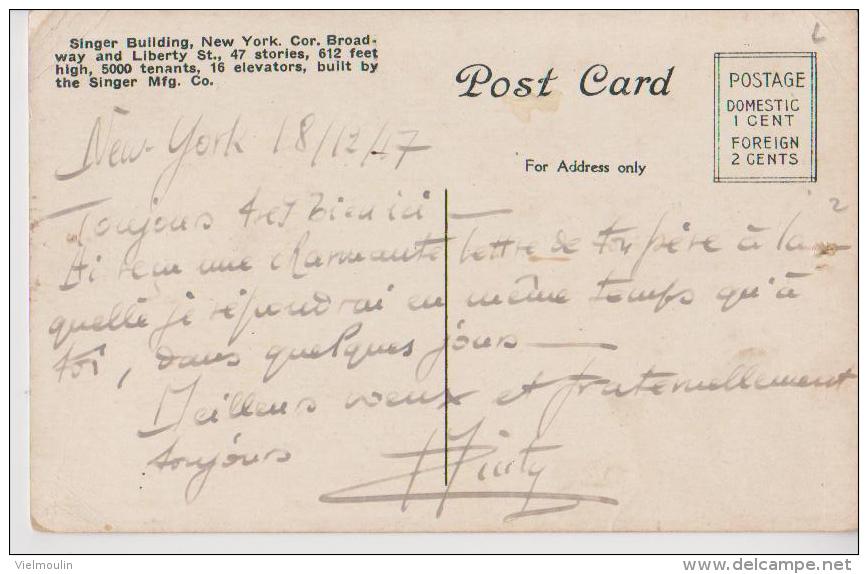 Singer Building, New York. Cor. Broad-
way and Liberty St., 47 stories, 612 feet
high, 5000 tenants, 16 elevators, built by
the Singer Mfg. Co.
Post Card
For Address only
POSTAGE
DOMESTIC
1 CENT
FOREIGN
2 CENTS
New-York 18/12/47
Toujours très bien ici —
Ai reçu une charmante lettre de ton père à la-
quelle je répondrai en même temps qu'à
toi, dans quelques jours —
Meilleurs voeux et fraternellement
toujours
Vielmoulin
delcampe.net